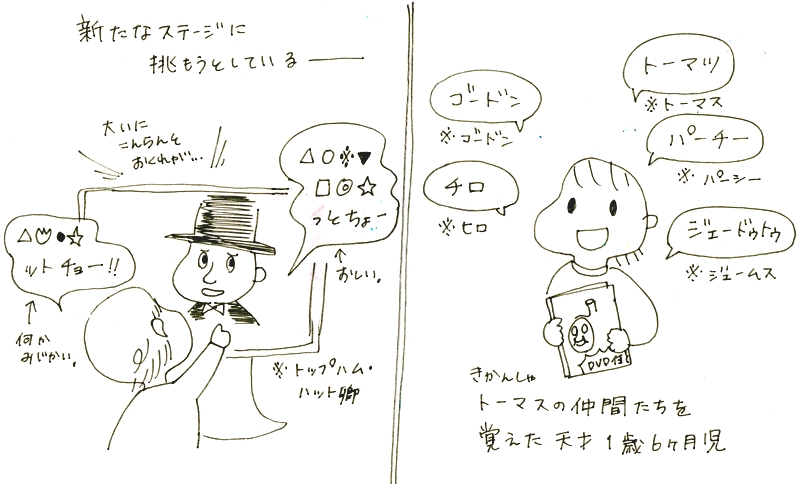 トーマツ
※トーマス
ゴードン
※ゴードン
パーチー
※パーシー
チロ
※ヒロ
ジェードゥトゥ
※ジェームス
DVD付き
きかんしゃ
トーマスの仲間たちを
覚えた天才1歳6ヶ月児
新たなステージに
挑もうとしている――
大いに
こんらんを
おくれが…
△○※▼
□◎☆
っとちょー
↑
おしい。
ットチョー!!
↑
何か
みじかい。
※トップハム・
ハット卿